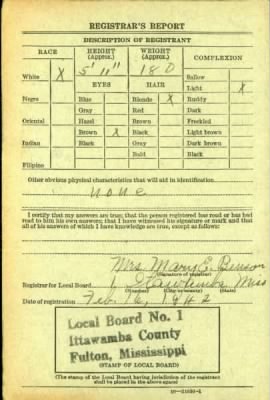 REGISTRAR'S REPORT
DESCRIPTION OF REGISTRANT
RACE HEIGHT (Approx.) WEIGHT (Approx.) COMPLEXION
White X 5' 11" 180 Sallow
EYES HAIR Light X
Negro Blue Blonde X Ruddy
Gray Red Dark
Oriental Hazel Brown Freckled
Brown X Black Light brown
Indian Black Gray Dark brown
Bald Black
Filipino
Other obvious physical characteristics that will aid in identification
none
I certify that my answers are true; that the person registered has read or has had
read to him his own answers; that I have witnessed his signature or mark and that
all of his answers of which I have knowledge are true, except as follows:
Mrs. Mary E. Benson
(Signature of registrar)
Registrar for Local Board 1 Itawamba Miss
(Number) (City or county) (State)
Date of registration Feb. 16, 1942
Local Board No. 1
Ittawamba County
Fulton, Mississippi
(STAMP OF LOCAL BOARD)
(The stamp of the Local Board having jurisdiction of the registrant
shall be placed in the above space)